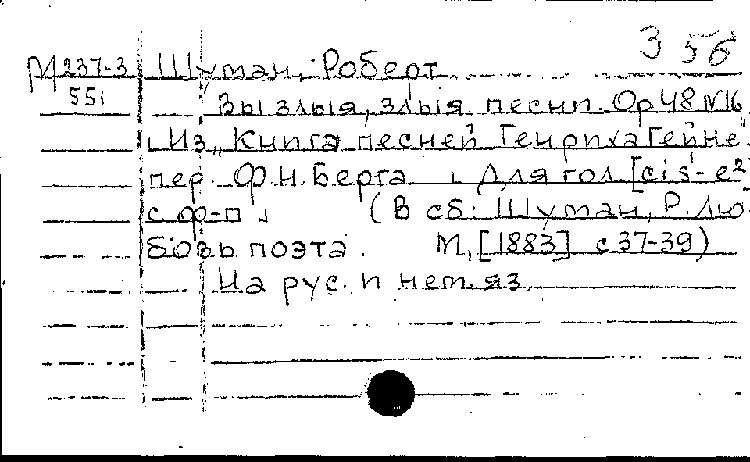 З 5б
М 237-3 Шуман, Роберт
551 Вы злыя, злыя песни. Ор 48 №16
Из „Книга песней Генриха Гейне"
пер. Ф.Н. Берга. Для гол. [cis¹-e²]
с ф-п. (В сб: Шуман, Р. Лю-
бовь поэта. М, [1883] с 37-39)
На рус. и нем. яз.